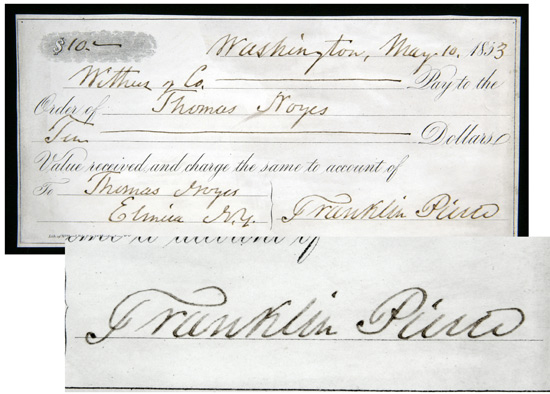 $10.—
Washington, May 10. 1853
Withers & Co. Pay to the
Order of Thomas Noyes
Ten Dollars
Value received and charge the same to account of
To Thomas Noyes
Elmira N.Y. Franklin Pierce
same to account of
Franklin Pierce